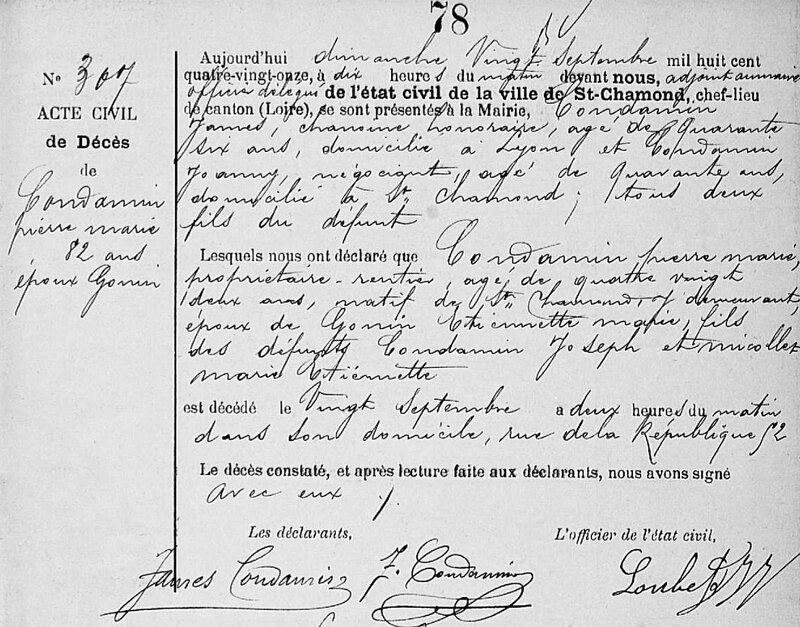 78
Aujourd'hui dimanche Vingt Septembre mil huit cent
quatre-vingt-onze, à dix heures du matin devant nous, adjoint au maire
officier délégué de l'état civil de la ville de St-Chamond, chef-lieu
de canton (Loire), se sont présentés à la Mairie, Condamin
James, chanoine honoraire, agé de Quarante
six ans, domicilié à Lyon et Condamin
Joanny, négociant, agé de quarante ans,
domicilié à St Chamond ; tous deux
fils du défunt
Lesquels nous ont déclaré que Condamin pierre marie,
propriétaire-rentier, agé de quatre vingt
deux ans, natif de St Chamond, y demeurant,
époux de Gonin Etiennette marie, fils
des défunts Condamin Joseph et micollet
marie Etiennette
est décédé le Vingt Septembre a deux heures du matin
dans son domicile, rue de la République 52
Le décès constaté, et après lecture faite aux déclarants, nous avons signé
avec eux
Les déclarants,
L'officier de l'état civil,
James Condamin
J. Condamin
Loubet
N° 307
ACTE CIVIL
de Décès
de
Condamin
pierre marie
82 ans
époux Gonin